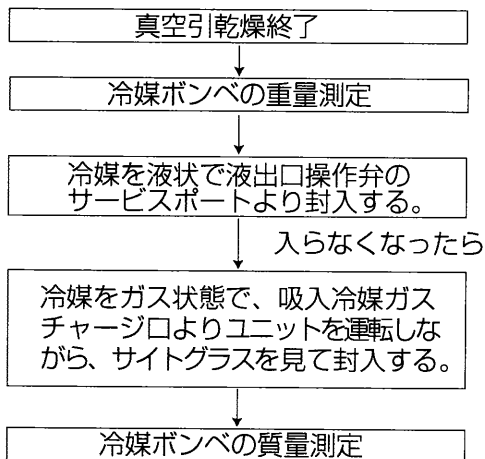 真空引乾燥終了
冷媒ボンベの重量測定
冷媒を液状で液出口操作弁の
サービスポートより封入する。
入らなくなったら
冷媒をガス状態で、吸入冷媒ガス
チャージ口よりユニットを運転しな
がら、サイトグラスを見て封入する。
冷媒ボンベの質量測定